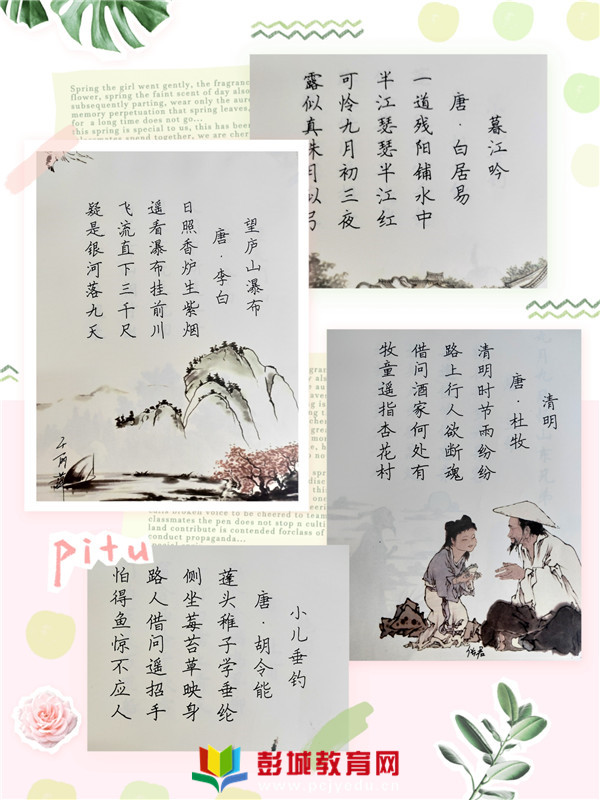 Spring the girl went gently, the
flower, spring the faint scent of day also
subsequently parting, wear only the
memory perpetuation that spring leaves,
for a long time does not go...
this spring is special to us, this has been
暮江吟
唐·白居易
一道残阳铺水中
半江瑟瑟半江红
可怜九月初三夜
露似真珠月似弓
望庐山瀑布
唐·李白
日照香炉生紫烟
遥看瀑布挂前川
飞流直下三千尺
疑是银河落九天
清明
唐·杜牧
清明时节雨纷纷
路上行人欲断魂
借问酒家何处有
牧童遥指杏花村
broken voice to be cheered to team
classmates the pen does not stop u culti
land contribute is contended forclass of
conduct propaganda...
pitu
小儿垂钓
唐·胡令能
蓬头稚子学垂纶
侧坐莓苔草映身
路人借问遥招手
怕得鱼惊不应人
彭城教育网
www.pcjyedu.cn